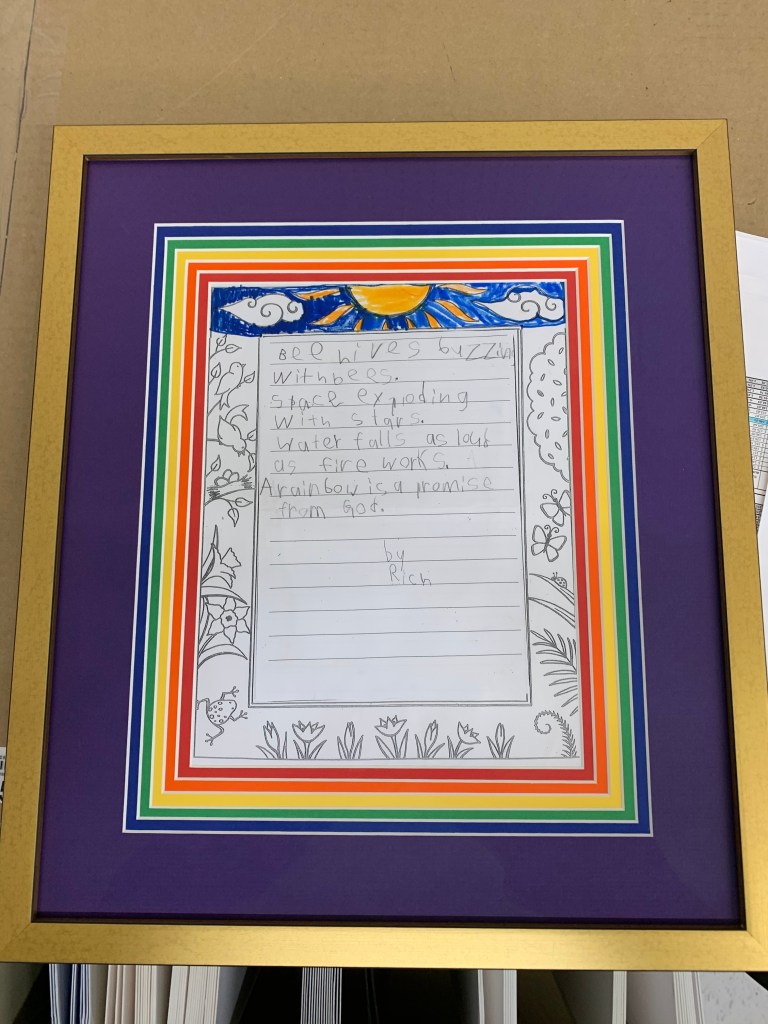 Bee hives buzzin
with bees.
space exploding
with stars.
water falls as loud
as fire works.
A rainbow is a promise
from God.
by
Rich